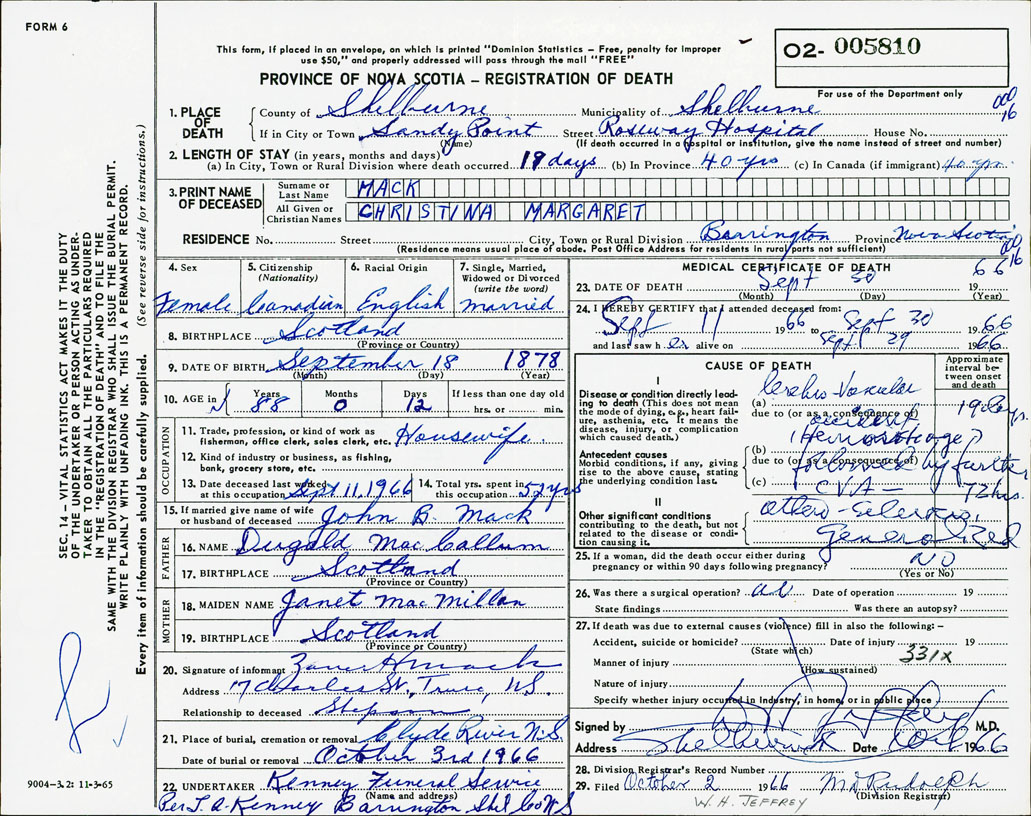 FORM 6
This form, if placed in an envelope, on which is printed "Dominion Statistics – Free, penalty for improper
use $50," and properly addressed will pass through the mail "FREE"
02- 005810
For use of the Department only
PROVINCE OF NOVA SCOTIA – REGISTRATION OF DEATH
000
16
1. PLACE OF DEATH County of Shelburne Municipality of Shelburne
If in City or Town Sandy Point Street Roseway Hospital House No.
(Name) (If death occurred in a hospital or institution, give the name instead of street and number)
2. LENGTH OF STAY (in years, months and days)
(a) In City, Town or Rural Division where death occurred 19 days (b) In Province 40 yrs (c) In Canada (if immigrant) 40 yrs.
3. PRINT NAME OF DECEASED Surname or Last Name MACK
All Given or Christian Names CHRISTINA MARGARET
RESIDENCE No. Street City, Town or Rural Division Barrington Province Nova Scotia
(Residence means usual place of abode. Post Office Address for residents in rural parts not sufficient)
000
16
4. Sex 5. Citizenship (Nationality) 6. Racial Origin 7. Single, Married, Widowed or Divorced (write the word)
Female Canadian English married
8. BIRTHPLACE Scotland
(Province or Country)
9. DATE OF BIRTH September 18 1878
(Month) (Day) (Year)
10. AGE in Years 88 Months 0 Days 12 If less than one day old hrs. or min.
OCCUPATION
11. Trade, profession, or kind of work as
fisherman, office clerk, sales clerk, etc. Housewife.
12. Kind of industry or business, as fishing,
bank, grocery store, etc.
13. Date deceased last worked at this occupation Sept 11, 1966 14. Total yrs. spent in this occupation 52 yrs
15. If married give name of wife
or husband of deceased John B Mack
FATHER
16. NAME Dugald MacCallum
17. BIRTHPLACE Scotland
(Province or Country)
MOTHER
18. MAIDEN NAME Janet MacMillan
19. BIRTHPLACE Scotland
(Province or Country)
20. Signature of informant H Mack
Address 17 Charles St, Truro, N.S.
Relationship to deceased Stepson
21. Place of burial, cremation or removal Clyde River N.S
Date of burial or removal October 3rd 1966
22. UNDERTAKER Kenney Funeral Service
(Name and address)
Per T. A. Kenney Barrington Shel Co N.S
MEDICAL CERTIFICATE OF DEATH
23. DATE OF DEATH Sept 30 19 66
(Month) (Day) (Year)
24. I HEREBY CERTIFY that I attended deceased from:
Sept 11 1966 to Sept 30 1966
and last saw h er alive on Sept 29 1966
CAUSE OF DEATH
Approximate interval between onset and death
I
Disease or condition directly leading to death (This does not mean the mode of dying, e.g., heart failure, asthenia, etc. It means the disease, injury, or complication which caused death.)
(a) Cerebro-Vascular
due to (or as a consequence of) accident 19 days.
(b) (Hemorrhage)
Antecedent causes
Morbid conditions, if any, giving rise to the above cause, stating the underlying condition last.
due to (or as a consequence of) followed by further
(c) CVA – 72 hrs.
II
Other significant conditions
contributing to the death, but not related to the disease or condition causing it.
Athero-Sclerosis,
Generalized
25. If a woman, did the death occur either during
pregnancy or within 90 days following pregnancy? NO
(Yes or No)
26. Was there a surgical operation? no Date of operation 19
State findings Was there an autopsy?
27. If death was due to external causes (violence) fill in also the following:–
Accident, suicide or homicide? Date of injury 19
(State which)
331X
Manner of injury
(How sustained)
Nature of injury
Specify whether injury occurred in industry, in home, or in public place
Signed by M.D.
Address Shelburne Date 1966
28. Division Registrar's Record Number
29. Filed October 2 1966 M D Rudolph
(Division Registrar)
W. H. JEFFREY
SEC. 14 – VITAL STATISTICS ACT MAKES IT THE DUTY
OF THE UNDERTAKER OR PERSON ACTING AS UNDERTAKER TO OBTAIN ALL THE PARTICULARS REQUIRED
IN THE "REGISTRATION OF DEATH" AND TO FILE THE
SAME WITH THE DIVISION REGISTRAR WHO SHALL ISSUE THE BURIAL PERMIT.
WRITE PLAINLY WITH UNFADING INK. THIS IS A PERMANENT RECORD.
Every item of information should be carefully supplied. (See reverse side for instructions.)
9004-3.2: 11-3-65